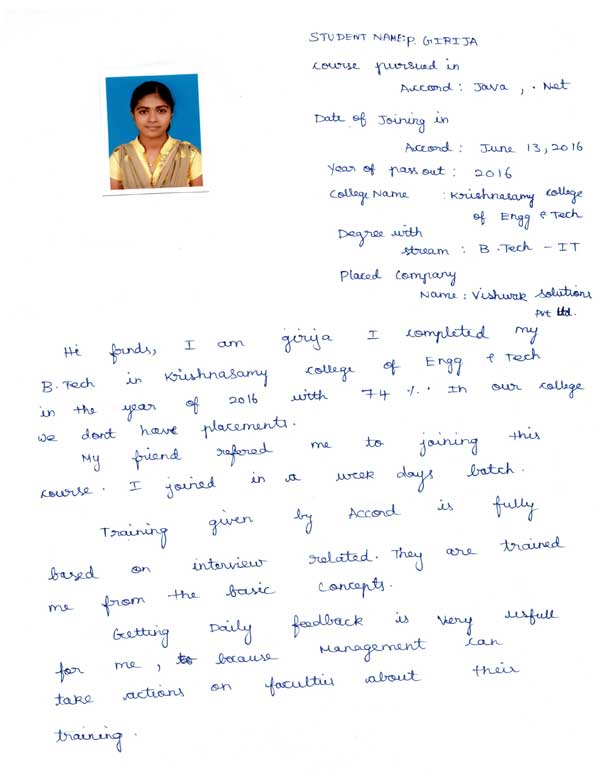 STUDENT NAME: P. GIRIJA
course pursued in
Accord : Java , . Net
Date of Joining in
Accord : June 13, 2016
Year of pass out : 2016
College Name : Krishnasamy college
of Engg & Tech
Degree with
stream : B.Tech - IT
Placed Company
Name : Vishwak solutions
Pvt ltd.
Hi frnds, I am girija I completed my
B.Tech in Krishnasamy college of Engg & Tech
in the year of 2016 with 74 %. In our college
we dont have placements.
My friend refered me to joining this
course. I joined in a week days batch.
Training given by Accord is fully
based on interview related. They are trained
me from the basic concepts.
Getting Daily feedback is very usfull
for me, because Management can
take actions on faculties about their
training.